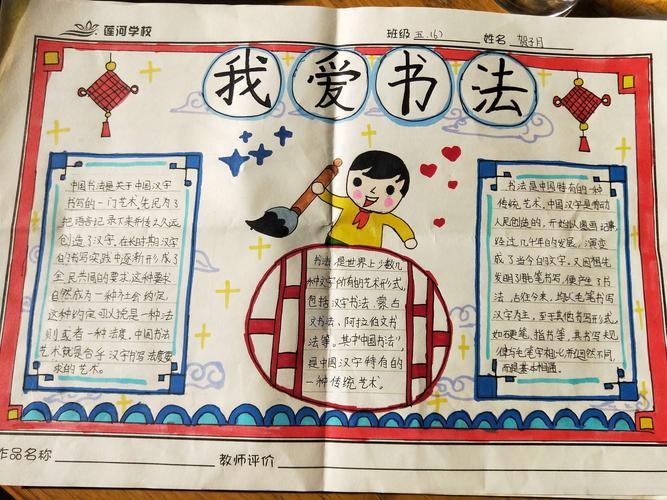 莲河学校
班级 五.(6)
姓名 贺子月
我爱书法
中国书法是关于中国汉字
书写的一门艺术,先民为了
把语言记录下来并传之久远,
创造了汉字,在长时期汉字
的书写实践中逐渐形成了
全民共同的要求,这种要求
自然成为一种社会约定,
这种约定可以说是一种法
则或者一种法度,中国书法
艺术就是合乎汉字书写法度要
求的艺术。
书法是世界上少数几
种文字所有的艺术形式,
包括汉字书法、蒙古
文书法、阿拉伯文书
法等。其中"中国书法",
是中国汉字特有的
一种传统艺术。
书法是中国特有的一种
传统艺术,中国汉字是劳动
人民创造的,开始以图画记事,
经过几千年的发展,演变
成了当今的文字,又因祖先
发明了用毛笔书写,便产生了书
法,古往今来,均以毛笔书写
汉字为主,至于其他书写形式,
如硬笔、指书等,其书写规
律与毛笔字相比,并非迥然不同,
而是基本相通。
作品名称
教师评价